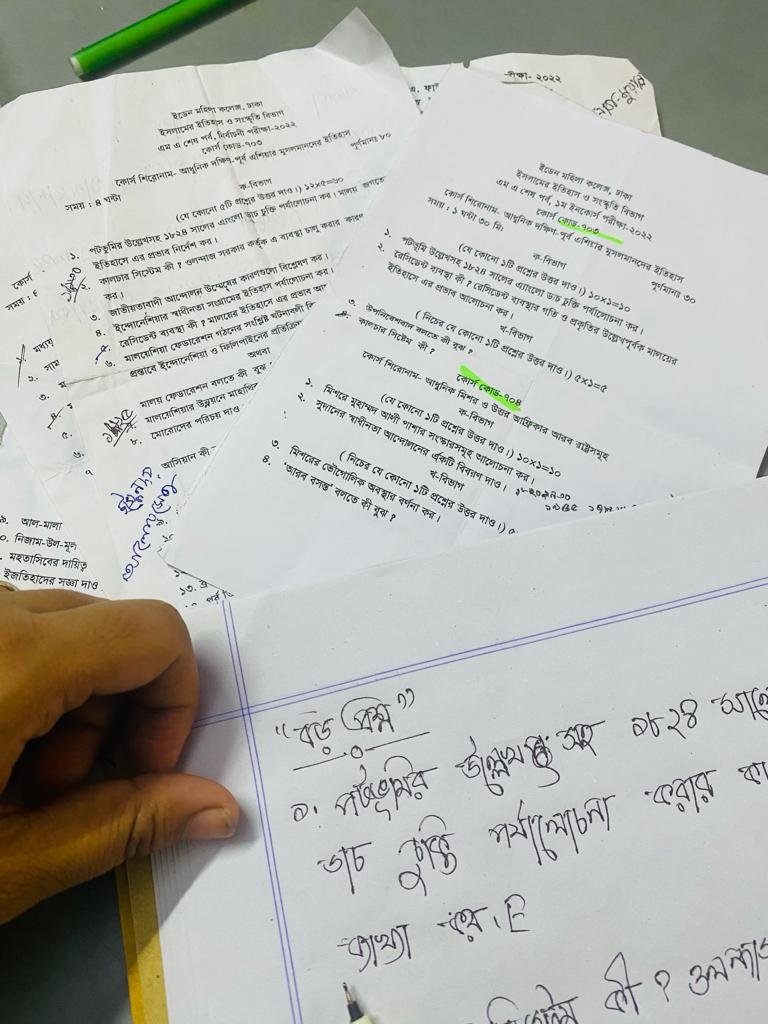 ইডেন মহিলা কলেজ, ঢাকা
ইসলামের ইতিহাস ও সংস্কৃতি বিভাগ
এম এ শেষ পর্ব, নির্বাচনী পরীক্ষা-২০২২
কোর্স কোড-৭০৩
কোর্স শিরোনাম- আধুনিক দক্ষিণ-পূর্ব এশিয়ার মুসলমানদের ইতিহাস
সময় : ৪ ঘন্টা পূর্ণমানঃ ৮০
ক-বিভাগ
(যে কোনো ৫টি প্রশ্নের উত্তর দাও।) ১২×৫=৬০
১. পটভূমির উল্লেখসহ ১৮২৪ সালের এ্যাংলো ডাচ চুক্তি পর্যালোচনা কর। মালয়
ইতিহাসে এর প্রভাব নির্দেশ কর।
২. কালচার সিস্টেম কী ? ওলন্দাজ সরকার কর্তৃক এ ব্যবস্থা চালু করার কারণ
কর।
৩. জাতীয়তাবাদী আন্দোলন উন্মেষের কারণগুলো বিশ্লেষণ কর।
৪. ইন্দোনেশিয়ার স্বাধীনতা সংগ্রামের ইতিহাস পর্যালোচনা কর।
৫. রেসিডেন্ট ব্যবস্থা কী ? মালয়ের ইতিহাসে এর প্রভাব
৬. মালয়েশিয়া ফেডারেশন গঠনের সংশ্লিষ্ট ঘটনাবলী
প্রস্তাবে ইন্দোনেশিয়া ও ফিলিপাইনের
অথবা
মালয় ফেডারেশন বলতে কী বুঝ
৭. মালয়েশিয়ার উন্নয়নে
৮. মোরোদের পরিচয় দাও
আসিয়ান কী
কোর্স
সময় : ৪
৯. আল-মালা
১০. নিজাম-উল-মূল
মহতাসিবের দায়িত্ব
ইজতিহাদের সজ্ঞা দাও
২০২২
ইডেন মহিলা কলেজ, ঢাকা
ইসলামের ইতিহাস ও সংস্কৃতি বিভাগ
এম এ শেষ পর্ব, ১ম ইনকোর্স পরীক্ষা-২০২২
কোর্স কোড-৭০৩
কোর্স শিরোনাম- আধুনিক দক্ষিণ-পূর্ব এশিয়ার মুসলমানদের ইতিহাস
সময় : ১ ঘন্টা ৩০ মি: পূর্ণমানঃ ৩০
ক-বিভাগ
(যে কোনো ১টি প্রশ্নের উত্তর দাও।) ১০×১=১০
১. পটভূমি উল্লেখসহ ১৮২৪ সালের এ্যাংলো ডাচ চুক্তি পর্যালোচনা কর।
২. রেসিডেন্ট ব্যবস্থা কী ? রেসিডেন্ট ব্যবস্থার গতি ও প্রকৃতির উল্লেখপূর্বক মালয়ের
ইতিহাসে এর প্রভাব আলোচনা কর।
খ-বিভাগ
( নিচের যে কোনো ১টি প্রশ্নের উত্তর দাও।) ৫×১=৫
৩. উপনিবেশবাদ বলতে কী বুঝ ?
৪. কালচার সিস্টেম কী ?
কোর্স কোড-৭০৪
কোর্স শিরোনাম- আধুনিক মিশর ও উত্তর আফ্রিকার আরব রাষ্ট্রসমূহ
ক-বিভাগ
(যে কোনো ১টি প্রশ্নের উত্তর দাও।) ১০×১=১০
১. মিশরে মুহাম্মদ আলী পাশার সংস্কারসমূহ আলোচনা কর।
২. সুদানের স্বাধীনতা আন্দোলনের একটি বিবরণ দাও।
খ-বিভাগ
( নিচের যে কোনো ১টি প্রশ্নের উত্তর দাও।)
৩. মিশরের ভৌগোলিক অবস্থার বর্ণনা কর।
৪. 'আরব বসন্ত' বলতে কী বুঝ ?
"বড় প্রশ্ন"
১. পটভূমির উল্লেখ সহ ১৮২৪ সালে
ডাচ চুক্তি পর্যালোচনা করার
ব্যাখ্যা কর।
কী ?